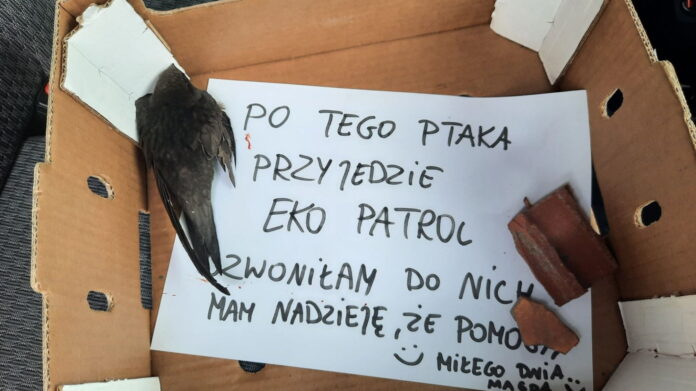 PO TEGO PTAKA
PRZYJEDZIE
EKO PATROL
DZWONIŁAM DO NICH
MAM NADZIEJĘ, ŻE POMOGĄ
☺ MIŁEGO DNIA..
MAGDA